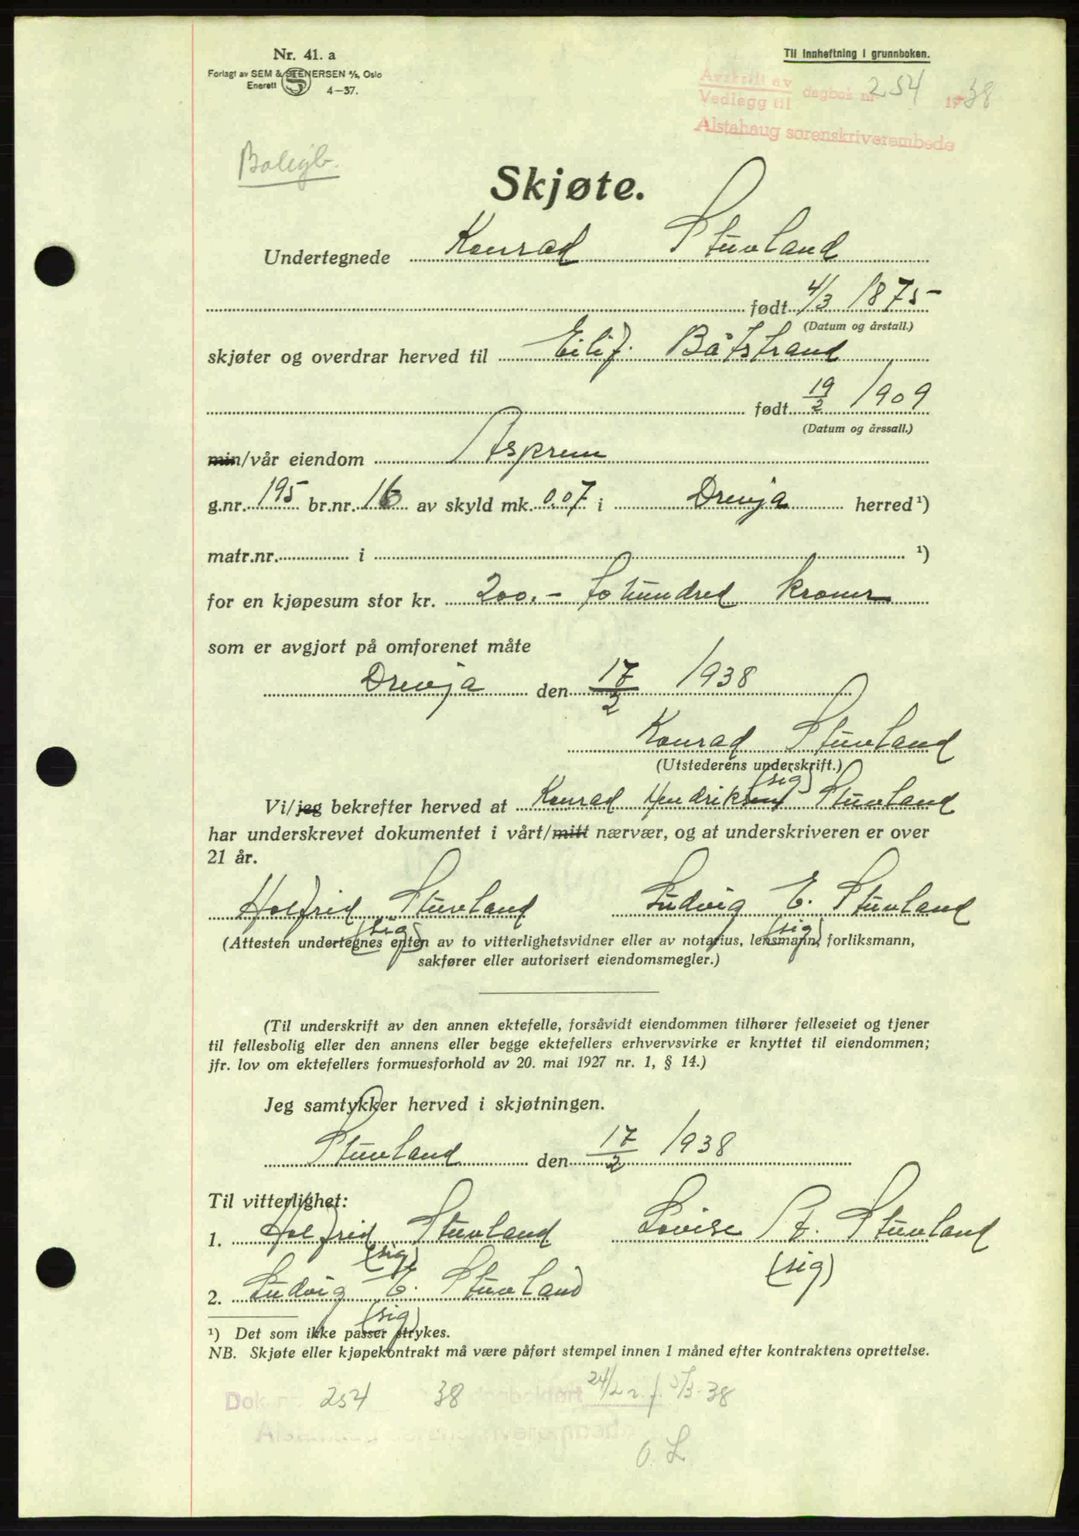 Nr. 41. a
Forlagt av SEM & STENERSEN A/S, Oslo
Enerett
4-37.
Til innheftning i grunnboken.
Avskrift av
Vedlegg til dagbok nr 254 1938
Alstahaug sorenskriverembede
Boligb.
Skjøte.
Undertegnede Konrad Stuvland
født 4/3 1875
(Datum og årstall.)
skjøter og overdrar herved til Eilif Båtstrand
født 19/2 1909
(Datum og årssall.)
min/vår eiendom Asprem
g.nr. 195 br.nr. 16 av skyld mk. 0.07 i Drevja herred ¹)
matr.nr. i ¹)
for en kjøpesum stor kr. 200.- Tohundred kroner
som er avgjort på omforenet måte
Drevja den 17/2 1938
Konrad Stuvland
(Utstederens underskrift.)
(sig)
Vi/jeg bekrefter herved at Konrad Hendriksen Stuvland
har underskrevet dokumentet i vårt/mitt nærvær, og at underskriveren er over
21 år.
Holfrid Stuvland Ludvig E. Stuvland
(sig) (sig)
(Attesten undertegnes enten av to vitterlighetsvidner eller av notarius, lensmann, forliksmann,
sakfører eller autorisert eiendomsmegler.)
(Til underskrift av den annen ektefelle, forsåvidt eiendommen tilhører felleseiet og tjener
til fellesbolig eller den annens eller begge ektefellers erhvervsvirke er knyttet til eiendommen;
jfr. lov om ektefellers formuesforhold av 20. mai 1927 nr. 1, § 14.)
Jeg samtykker herved i skjøtningen.
Stuvland den 17/2 1938
Til vitterlighet:
1. Holfrid Stuvland Lovise St. Stuvland
(sig) (sig)
2. Ludvig E. Stuvland
(sig)
¹) Det som ikke passer strykes.
NB. Skjøte eller kjøpekontrakt må være påført stempel innen 1 måned efter kontraktens oprettelse.
Dok. nr. 254 38 24/2 3/3-38
O. L